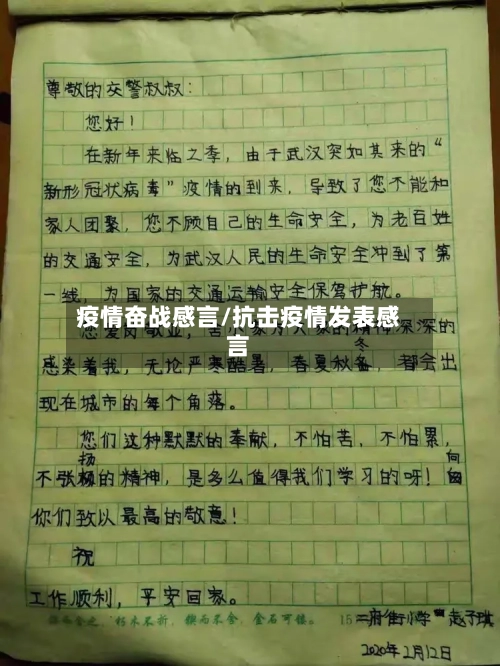 尊敬的交警叔叔：
您好！
在新年来临之季，由于武汉突如其来的“
新形冠状病毒”疫情的到来，导致了您不能和
家人团聚，您不顾自己的生命安全，为老百姓
的交通安全，为武汉人民的生命安全冲到了第
一线，为国家的交通运输安全保驾护航。
疫情奋战感言/抗击疫情发表感
言
您爱岗敬业，舍小家为大家的精神深深的
感染着我，无论严寒酷暑，春夏秋冬，都会出
现在城市的每个角落。
您们这种默默的奉献，不怕苦，不怕累，
不张扬的精神，是多么值得我们学习的呀！向
你们致以最高的敬意！
祝
工作顺利，平安回家。
朽木不折，锲而不舍，金石可镂。
15
二府街小学 赵子琪
2020年2月12日